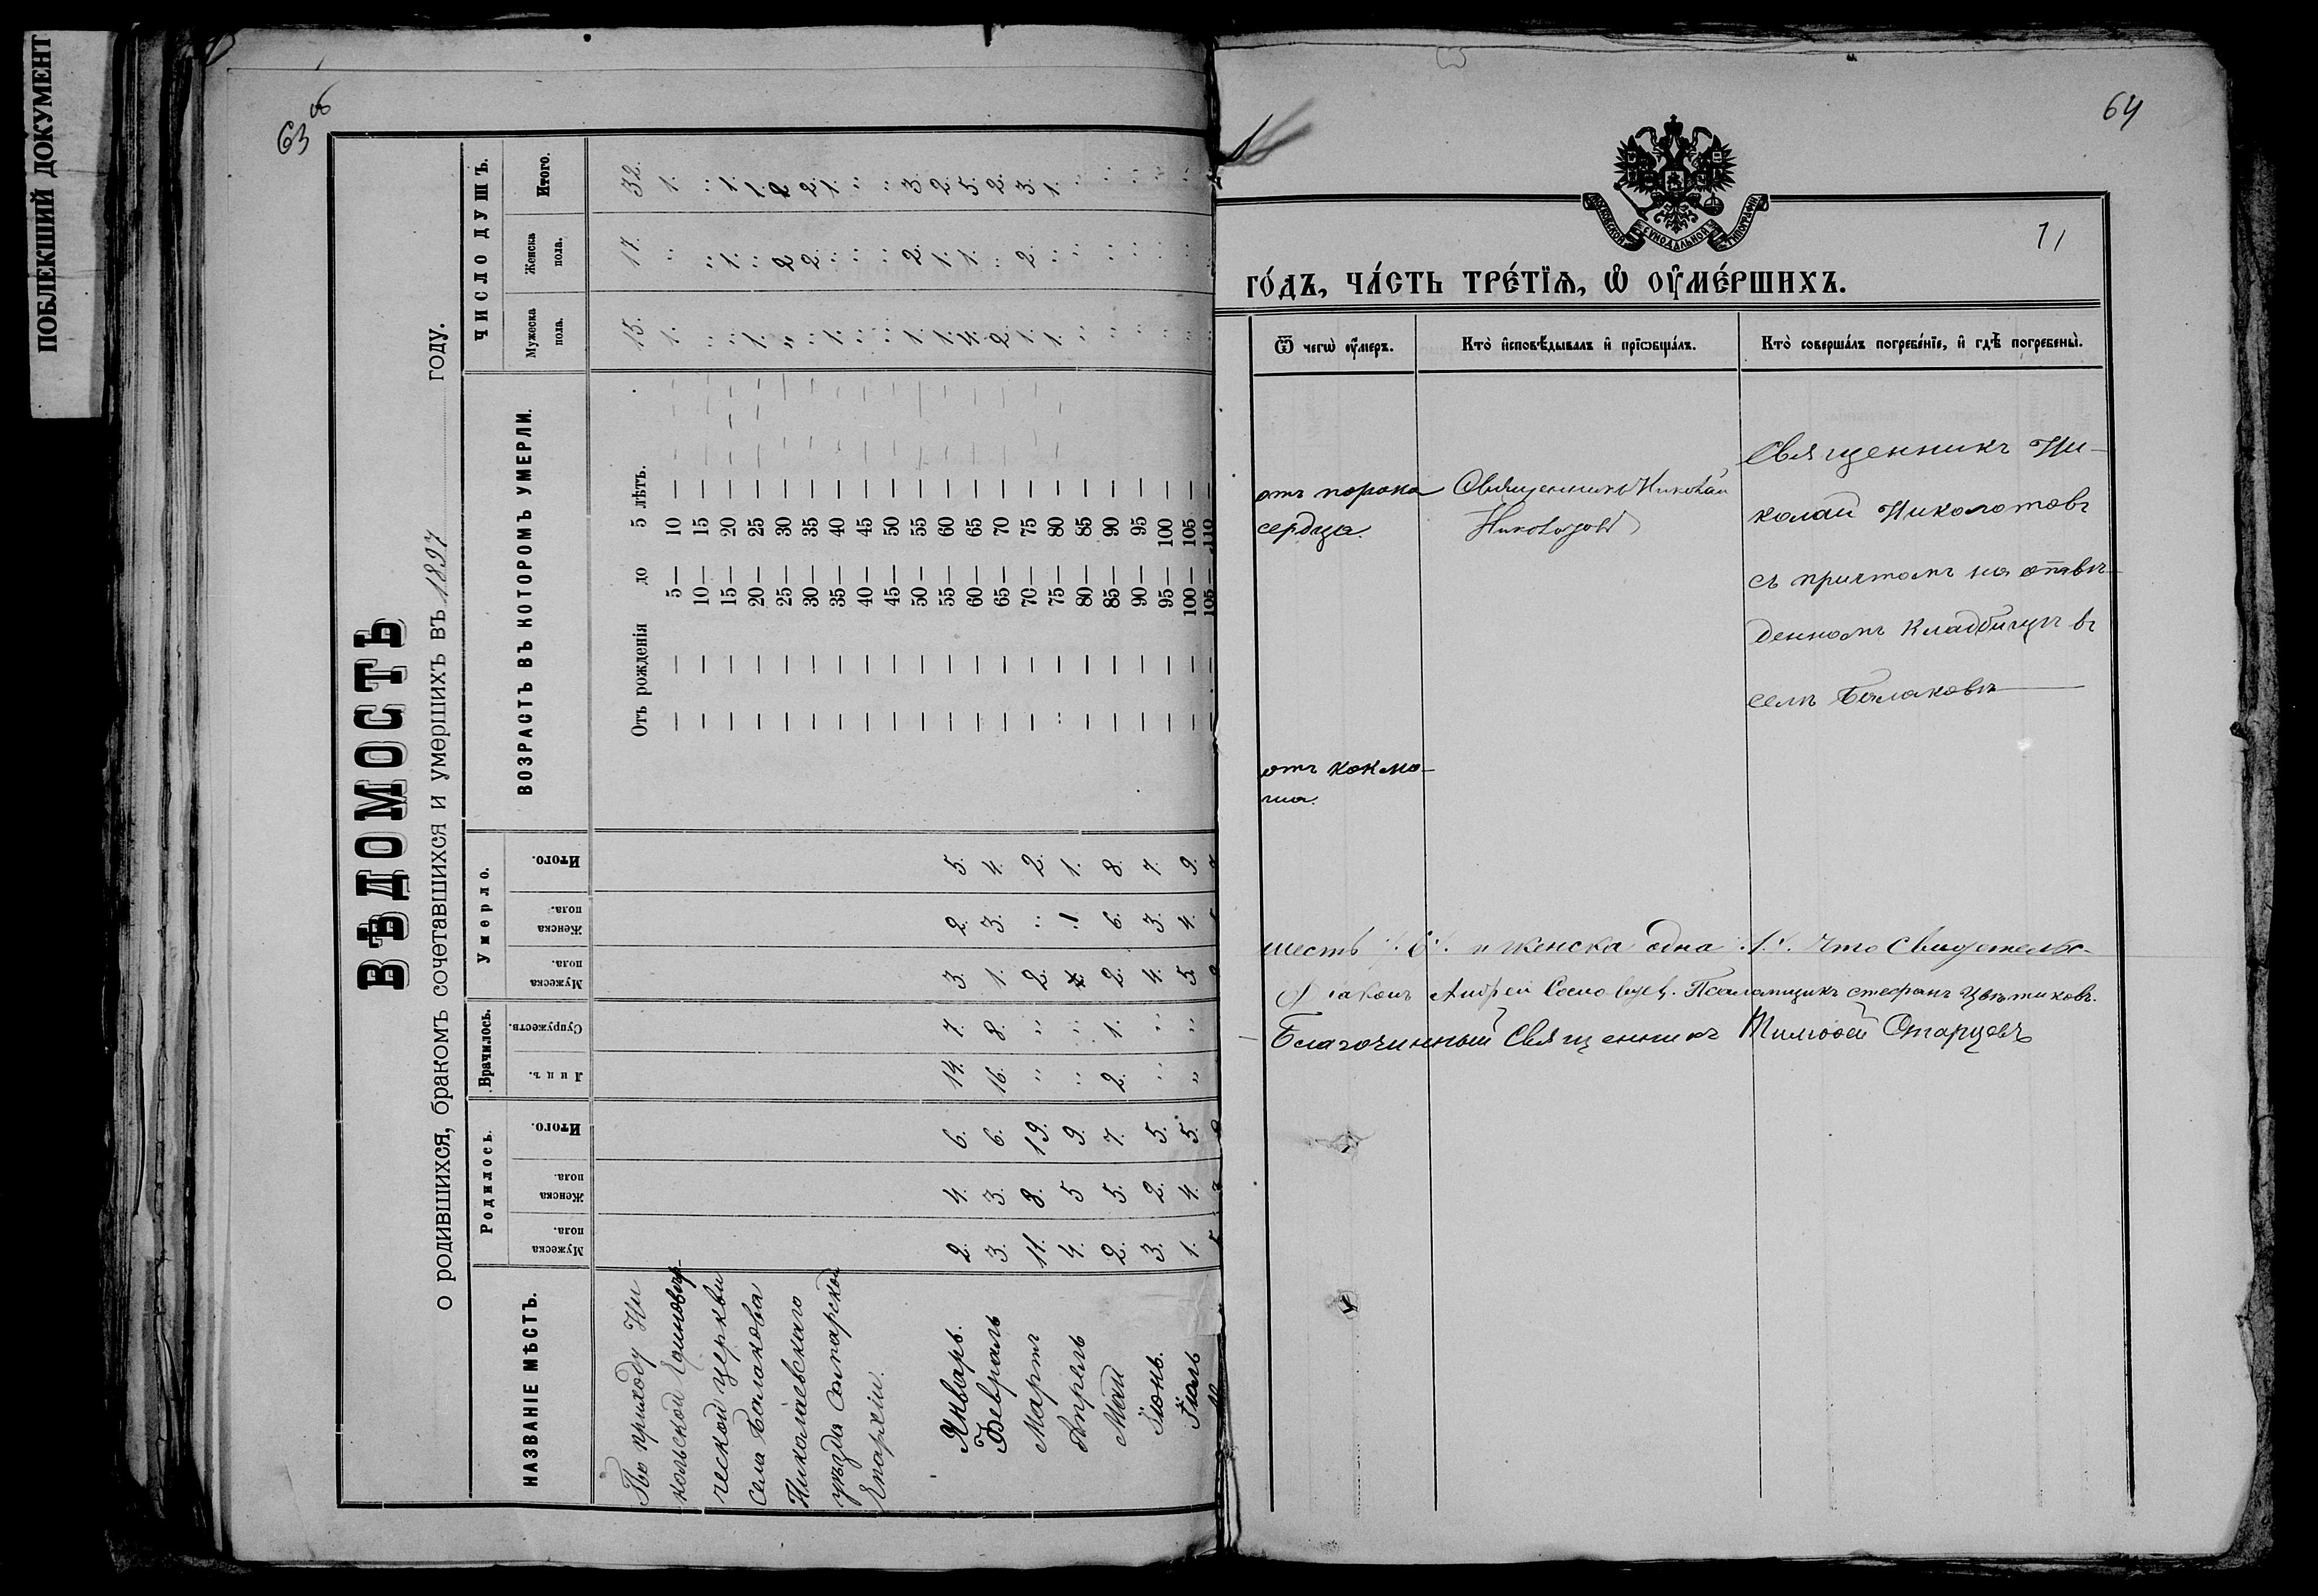 ПОБЛЕКШИЙ ДОКУМЕНТ
63 об
ВѢДОМОСТЬ
о родившихся, бракомъ сочетавшихся и умершихъ въ 1897 году.
НАЗВАНІЕ МѢСТЪ.
Родилось.
Мужеска пола.
Женска пола.
Итого.
Врачилось.
Лицъ.
Супружеств.
Умерло.
Мужеска пола.
Женска пола.
Итого.
ВОЗРАСТЪ ВЪ КОТОРОМЪ УМЕРЛИ.
ЧИСЛО ДУШЪ.
Мужеска пола.
Женска пола.
Итого.
По приходу Ни
кольской Единовѣр-
ческой церкви
села Балакова
Николаевскаго
уѣзда Самарской
Епархіи.
Январь. 2. 4. 6. 14. 7. 3. 2. 5.
Февраль 3. 3. 6. 16. 8. 1. 3. 4.
Мартъ 11. 8. 19. " " 2. " 2.
Апрѣль 4. 5 9. " " 1 1.
Май 2. 5. 7. 2. 1. 2. 6. 8.
Іюнь. 3. 2. 5. " " 4. 3. 7.
Іюль 1. 4. 5. " " 5. 4. 9.
Отъ рожденія до 5 лѣтъ. 15. 17. 32.
— — 5 — 10 — 1. " 1.
— — 10 — 15 — " " "
— — 15 — 20 — " 1. 1.
— — 20 — 25 — 1. " 1.
— — 25 — 30 — " 2 2
— — 30 — 35 — " 2. 2.
— — 35 — 40 — 1. " 1.
— — 40 — 45 — " " "
— — 45 — 50 — " " "
— — 50 — 55 — 1. 2. 3.
— — 55 — 60 — 1. 1. 2.
— — 60 — 65 — 4. 1. 5.
— — 65 — 70 — 2 " 2.
— — 70 — 75 — 1. 2. 3.
— — 75 — 80 — 1. " 1.
— — 80 — 85 — " " "
— — 85 — 90 — " " "
— — 90 — 95 — " " "
— — 95 — 100 — " " "
— — 100 — 105 — " " "
— 105 — 110
64
МОСКОВСКОЙ СѴНОДАЛЬНОЙ ТИПОГРАФІИ
71
го́дъ, ча́сть тре́тїѧ, ѡ҆ оу҆ме́ршихъ.
Ѿ чегѡ̀ оу҆́меръ.
Кто̀ и҆сповѣ́дывалъ и҆ прїѡбща́лъ.
Кто̀ соверша́лъ погребе́нїе, и҆ гдѣ̀ погребены̀.
отъ порока
сердца.
Священникъ Николай
Николотовъ
Священникъ Ни-
колай Николотовъ
съ причтомъ на отве-
денномъ кладбищѣ въ
селѣ Балаковѣ
отъ коклю-
ша.
шесть 6. и женска одна 1. Что свидетельс-
Діаконъ Андрей . Псаломщикъ Стефанъ Цвѣтиковъ.
Благочинный Священникъ Тимоѳей Старцовъ